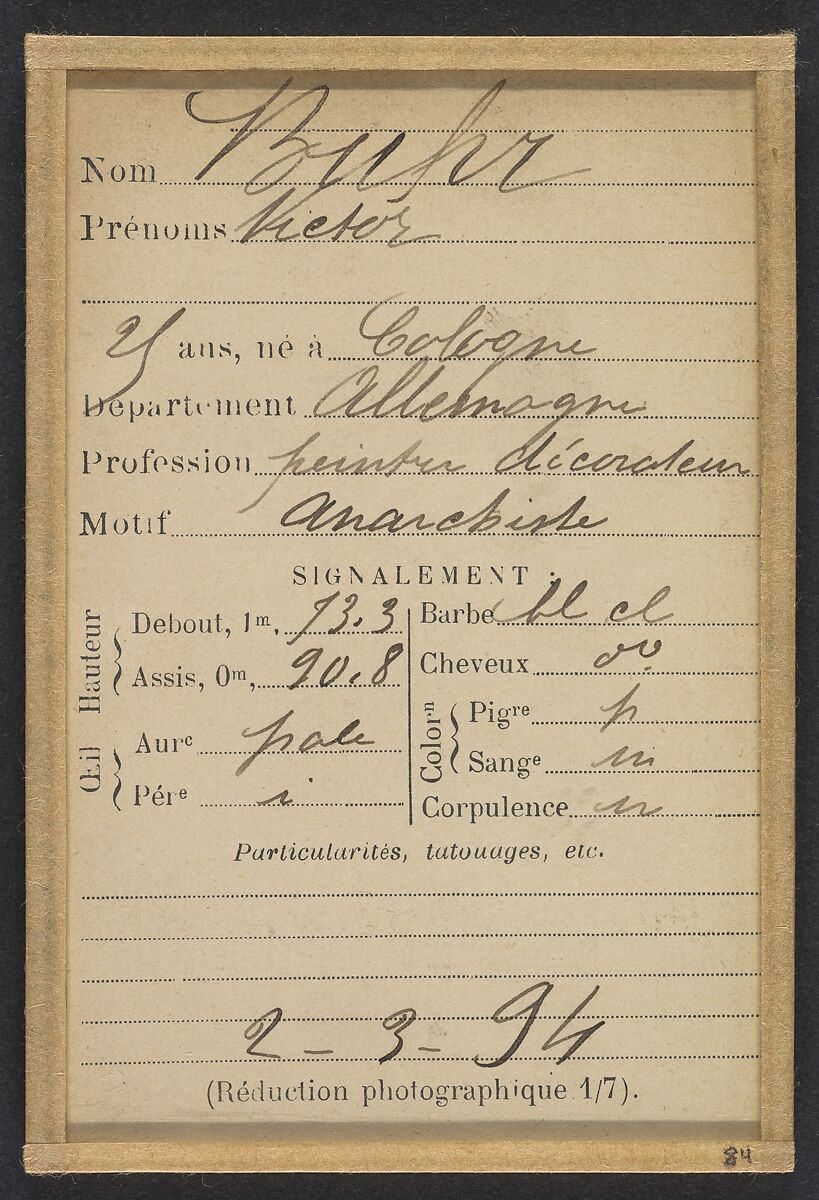 Nom Buhr
Prénoms Victor
25 ans, né à Cologne
Département Allemagne
Profession peintre décorateur
Motif Anarchiste
SIGNALEMENT :
Hauteur
Debout, 1m, 73.3
Assis, 0m, 90.8
Œil
Aurᵉ pale
Périᵉ i
Barbe bl cl
Cheveux dº
Colorⁿ
Pigʳᵉ p
Sangᵉ m
Corpulence m
Particularités, tatouages, etc.
2 - 3 - 94
(Réduction photographique 1/7).
84